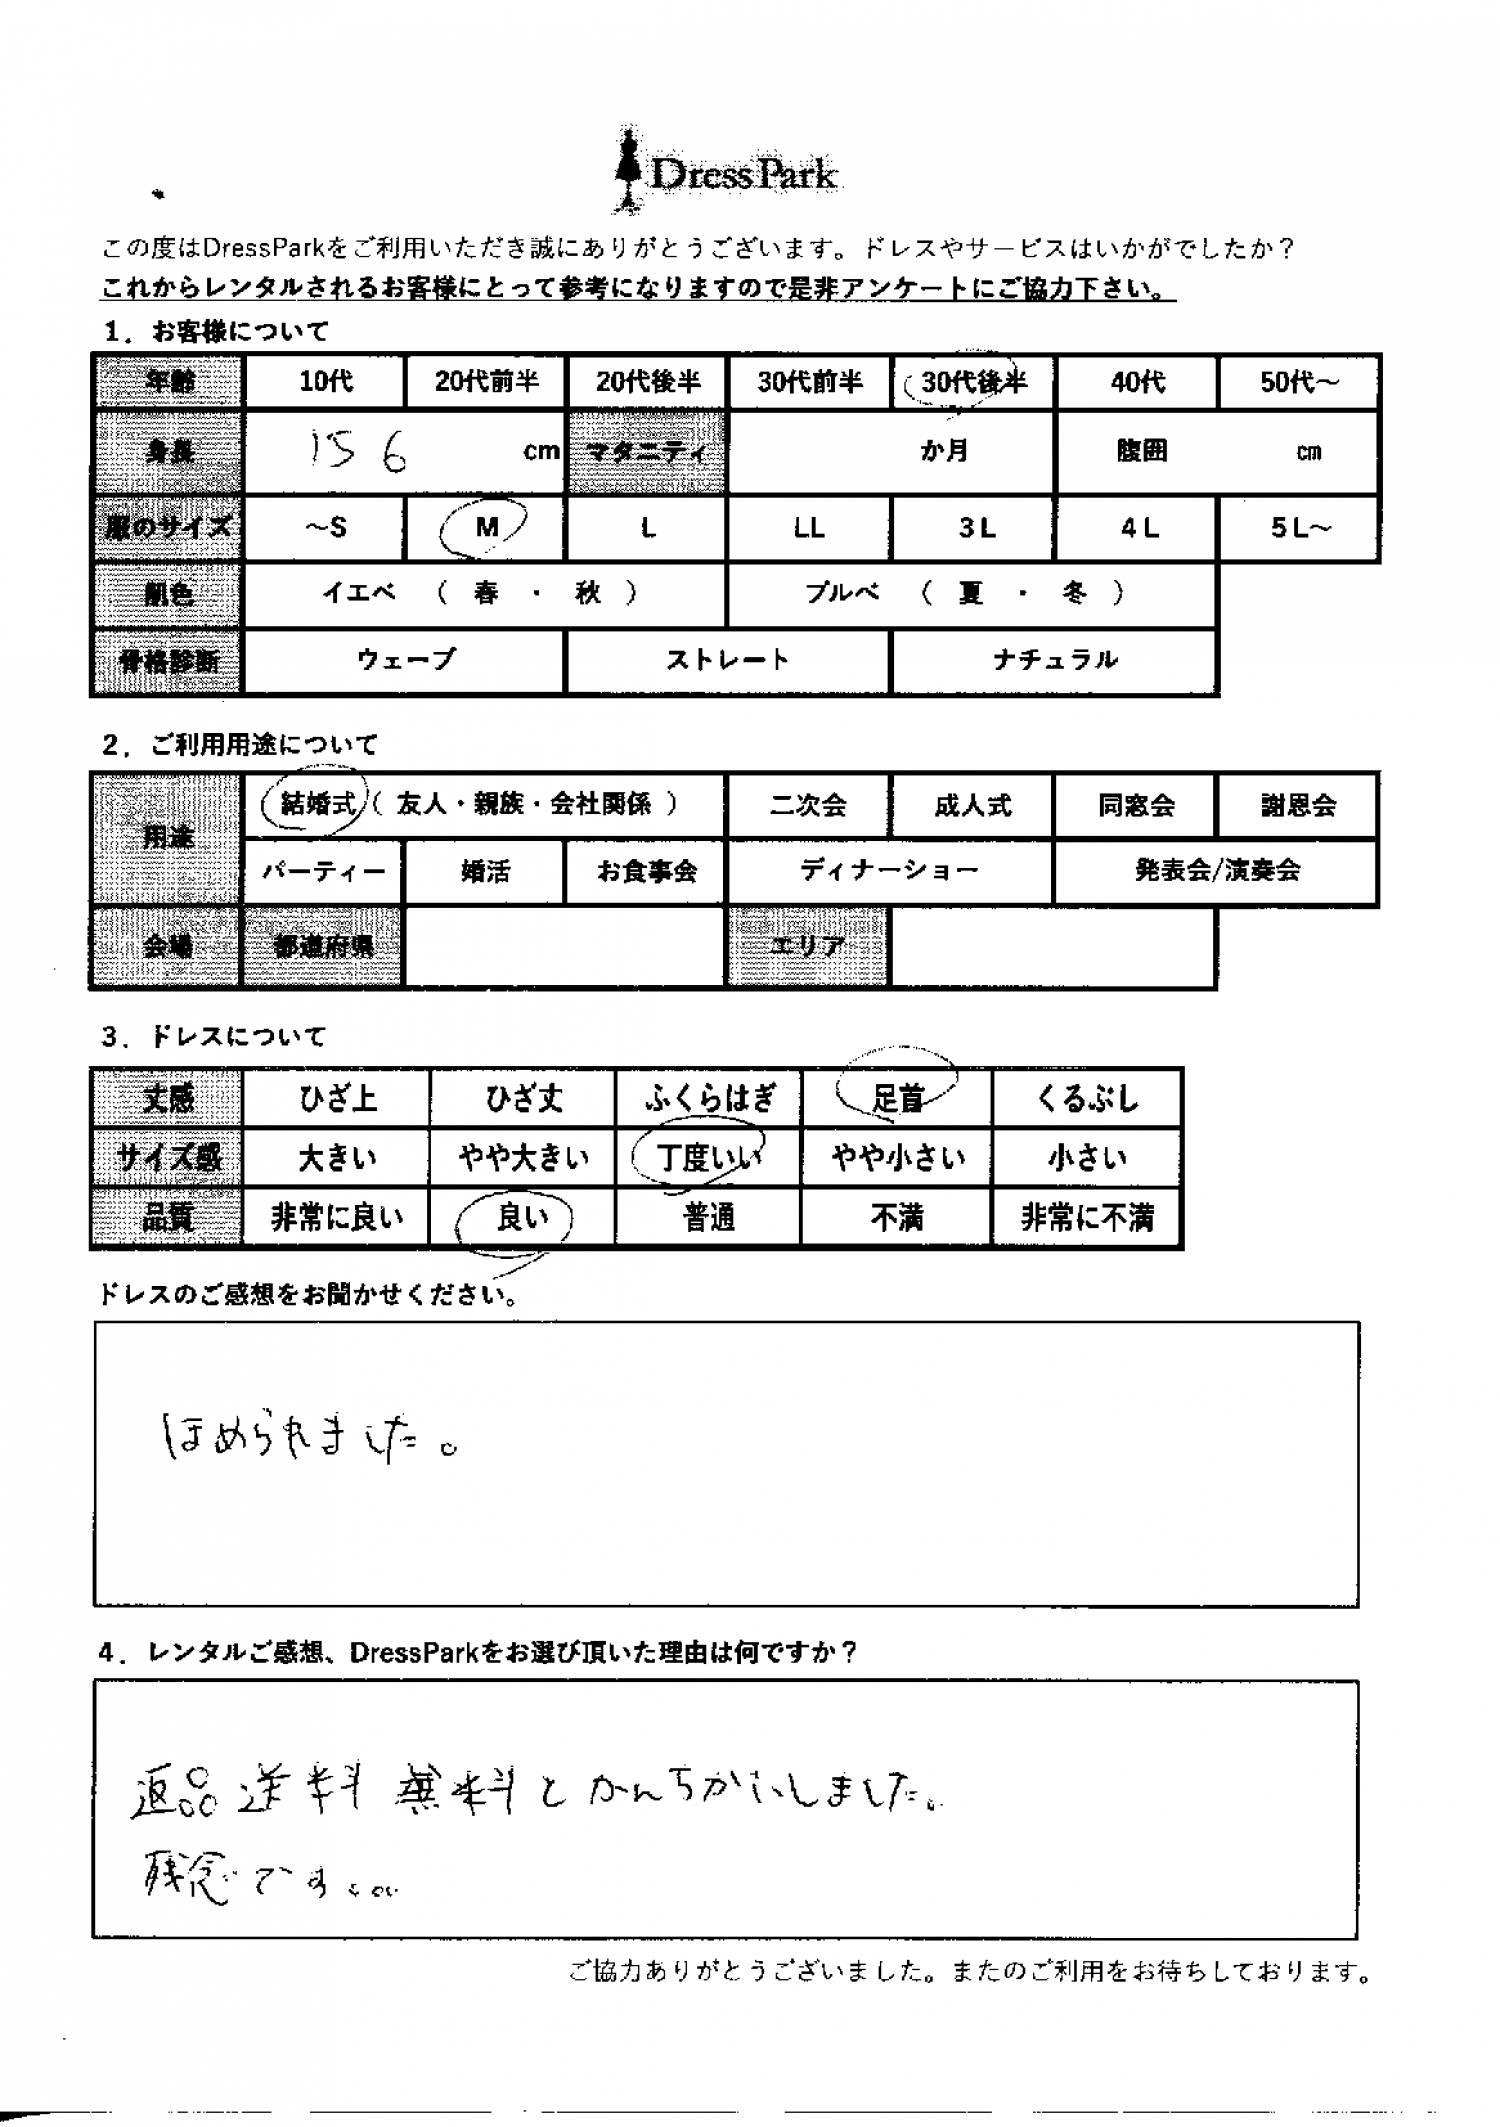 DressPark
この度はDressParkをご利用いただき誠にありがとうございます。ドレスやサービスはいかがでしたか？
これからレンタルされるお客様にとって参考になりますので是非アンケートにご協力下さい。
1．お客様について
年齢 10代 20代前半 20代後半 30代前半 30代後半 40代 50代～
身長 156 cm マタニティ か月 腹囲 cm
服のサイズ ～S M L LL 3L 4L 5L～
肌色 イエベ （ 春 ・ 秋 ） ブルベ （ 夏 ・ 冬 ）
骨格診断 ウェーブ ストレート ナチュラル
2．ご利用用途について
用途 結婚式（ 友人・親族・会社関係 ） 二次会 成人式 同窓会 謝恩会
パーティー 婚活 お食事会 ディナーショー 発表会/演奏会
会場 都道府県 エリア
3．ドレスについて
丈感 ひざ上 ひざ丈 ふくらはぎ 足首 くるぶし
サイズ感 大きい やや大きい 丁度いい やや小さい 小さい
品質 非常に良い 良い 普通 不満 非常に不満
ドレスのご感想をお聞かせください。
ほめられました。
4．レンタルご感想、DressParkをお選び頂いた理由は何ですか？
返品送料無料とかんちがいしました。
残念です。。。
ご協力ありがとうございました。またのご利用をお待ちしております。